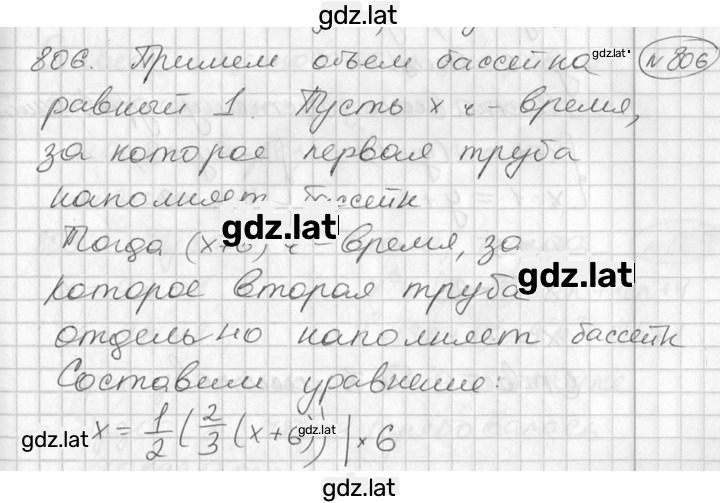 gdz.lat
806. Примем объем бассейна gdz.lat №806
равный 1. Пусть x ч - время,
за которое первая труба
наполняет бассейн
gdz.lat
Тогда (x+6) ч - время, за
которое вторая труба
gdz.lat
отдельно наполняет бассейн
Составим уравнение:
gdz.lat x = 1/2 (2/3 (x+6)) | × 6
gdz.lat
gdz.lat